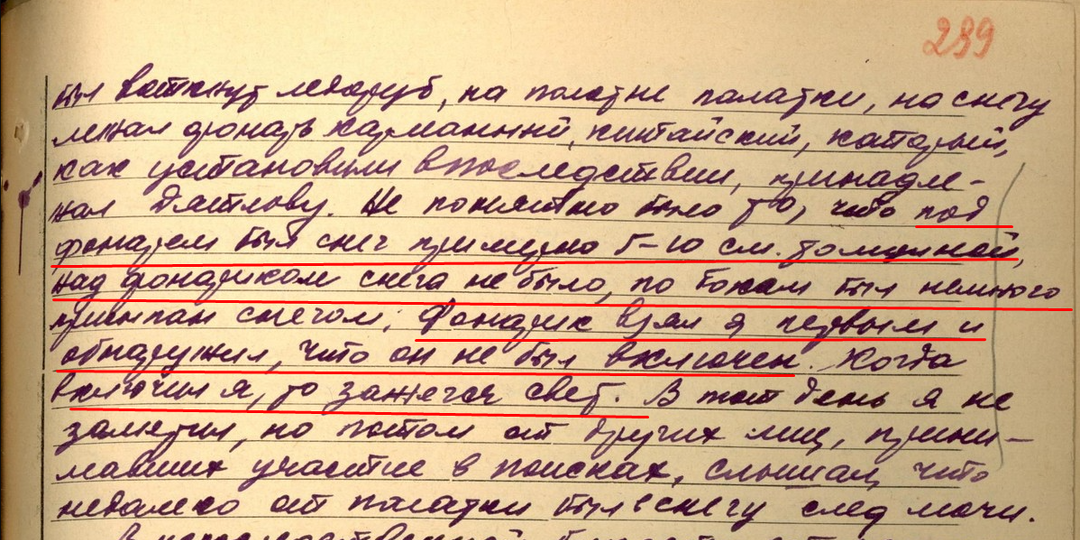 289
был воткнут ледоруб, на полотне палатки, на снегу
лежал фонарь карманный, китайский, который,
как установили впоследствии, принадле-
жал Дятлову. Не понятно было то, что под
фонарем был снег примерно 5-10 см. толщиной,
над фонариком снега не было, по бокам был немного
присыпан снегом. Фонарик взял я первым и
обнаружил, что он не был включен. Когда
включил я, то зажегся свет. В тот день я не
заметил, но потом от других лиц, прини-
мавших участие в поисках, слышал, что
недалеко от палатки был в снегу след мочи.